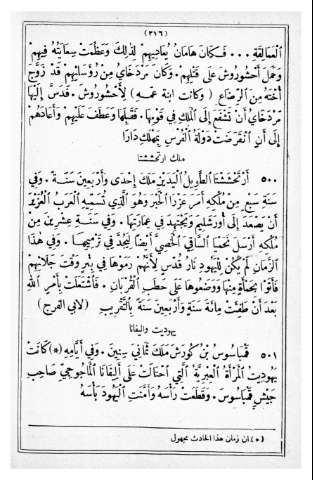 (٣١٦)
ٱلْعَمَالِقَةِ . . . فَكَانَ هَامَانُ يُعَادِيهِمْ لِذٰلِكَ وَعَظُمَتْ سِعَايَتُهُ فِيهِمْ
وَحَمَلَ أَحْشُورُوشَ عَلَى قَتْلِهِمْ . وَكَانَ مَرْدَخَايُ مِنْ رُؤَسَائِهِمْ قَدْ زَوَّجَ
أُخْتَهُ مِنَ الرَّضَاعِ (وكانت ابنة عمه) لِأَحْشُورُوشَ . فَدَسَّ إِلَيْهَا
مَرْدَخَايُ أَنْ تَشْفَعَ إِلَى الْمَلِكِ فِي قَوْمِهَا . فَقَبِلَهَا وَعَطَفَ عَلَيْهِمْ وَأَعَادَهُمْ
إِلَى أَنِ ٱنْقَرَضَتْ دَوْلَةُ الْفُرْسِ بِمَهْلِكِ دَارَا
ملك ارتحششتا
٥٠٠ أَرْتَحْشَشْتَا الطَّوِيلُ الْيَدَيْنِ مَلَكَ إِحْدَى وَأَرْبَعِينَ سَنَةً . وَفِي
سَنَةِ سَبْعٍ مِنْ مُلْكِهِ أَمَرَ عَزْرَا الْحَبْرَ وَهُوَ الَّذِي تُسَمِّيهِ الْعَرَبُ الْعُزَيْرَ
أَنْ يَصْعَدَ إِلَى أُورَشَلِيمَ وَيَجْتَهِدَ فِي عِمَارَتِهَا . وَفِي سَنَةِ عِشْرِينَ مِنْ
مُلْكِهِ أَرْسَلَ نَحَمْيَا السَّاقِيَ الْخَصِيَّ أَيْضًا لِيُجِدَّ فِي تَرْمِيمِهَا . وَفِي هٰذَا
الزَّمَانِ لَمْ يَكُنْ لِلْيَهُودِ نَارُ قُدْسٍ لِأَنَّهُمْ رَمَوْهَا فِي بِئْرٍ وَقْتَ جَلَائِهِمْ
فَأَتَوْا بِحَمْأَةٍ مِنْهَا وَوَضَعُوهَا عَلَى حَطَبِ الْقُرْبَانِ . فَٱشْتَعَلَتْ بِأَمْرِ اللهِ
بَعْدَ أَنْ طَفِئَتْ مِائَةَ سَنَةٍ وَأَرْبَعِينَ سَنَةً بِالتَّقْرِيبِ (لابي الفرج)
يهوديت واليفانا
٥٠١ قَمْبَاسُوسُ بْنُ كُورَشَ مَلَكَ ثَمَانِيَ سِنِينَ . وَفِي أَيَّامِهِ (*) كَانَتْ
يَهُودِيتُ الْمَرْأَةُ الْعِبْرِيَّةُ الَّتِي ٱحْتَالَتْ عَلَى أَلِيفَانَا الْمَاجُوجِيِّ صَاحِبِ
جَيْشِ قَمْبَاسُوسَ . وَقَطَعَتْ رَأْسَهُ وَأَمَّنَتِ الْيَهُودَ بَأْسَهُ
(*) ان زمان هذا الحادث مجهول